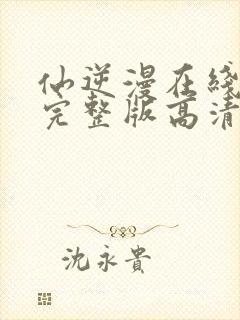 仙逆漫在綫
完整版高清
沈永貴